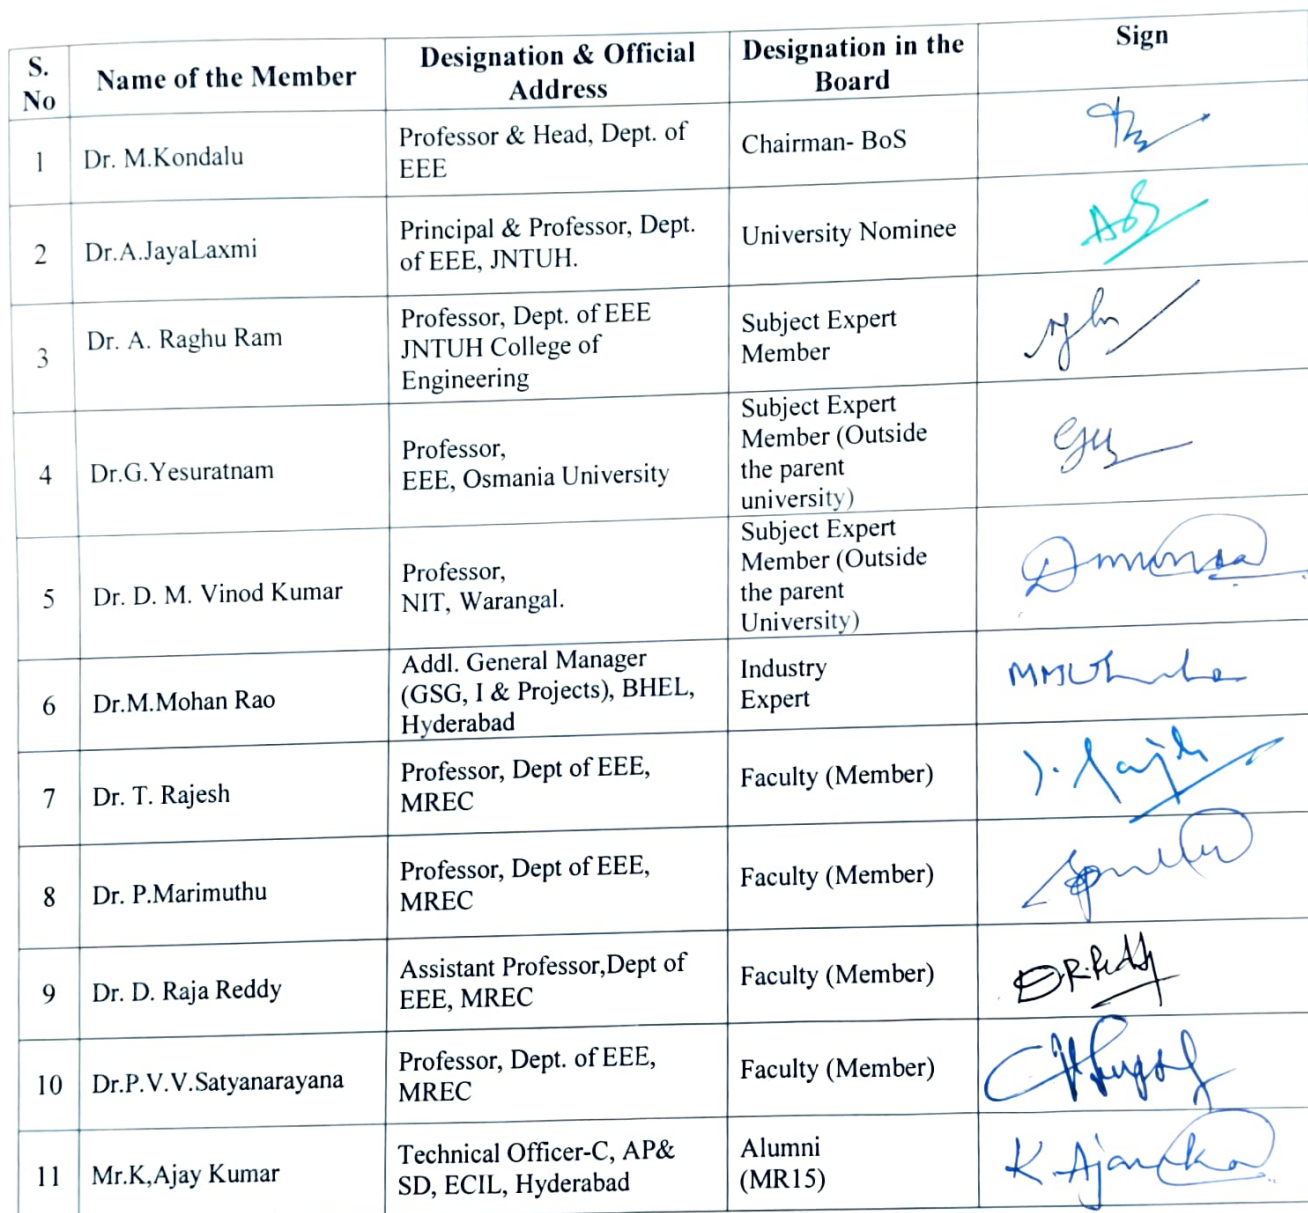 S. No
Name of the Member
Designation & Official Address
Designation in the Board
Sign
1
Dr. M.Kondalu
Professor & Head, Dept. of
EEE
Chairman- BoS
2
Dr.A.JayaLaxmi
Principal & Professor, Dept.
of EEE, JNTUH.
University Nominee
3
Dr. A. Raghu Ram
Professor, Dept. of EEE
JNTUH College of
Engineering
Subject Expert
Member
4
Dr.G.Yesuratnam
Professor,
EEE, Osmania University
Subject Expert
Member (Outside
the parent
university)
5
Dr. D. M. Vinod Kumar
Professor,
NIT, Warangal.
Subject Expert
Member (Outside
the parent
University)
6
Dr.M.Mohan Rao
Addl. General Manager
(GSG, I & Projects), BHEL,
Hyderabad
Industry
Expert
7
Dr. T. Rajesh
Professor, Dept of EEE,
MREC
Faculty (Member)
8
Dr. P.Marimuthu
Professor, Dept of EEE,
MREC
Faculty (Member)
9
Dr. D. Raja Reddy
Assistant Professor,Dept of
EEE, MREC
Faculty (Member)
10
Dr.P.V.V.Satyanarayana
Professor, Dept. of EEE,
MREC
Faculty (Member)
11
Mr.K,Ajay Kumar
Technical Officer-C, AP&
SD, ECIL, Hyderabad
Alumni
(MR15)